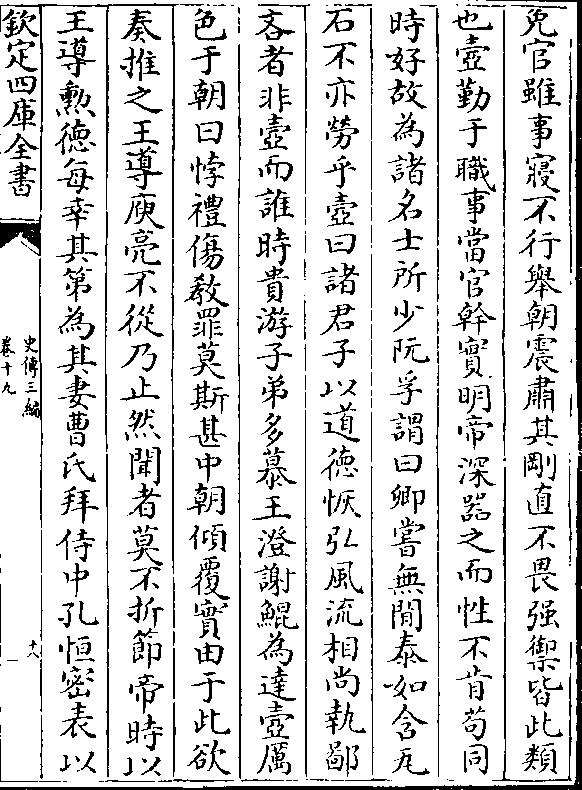 免官雖事寢不行舉朝震肅其剛直不畏强禦皆此類
也壺勤于職事當官幹實明帝深器之而性不肯茍同
時好故為諸名士所少阮孚謂曰卿嘗無閒泰如含瓦
石不亦勞乎壺曰諸君子以道德恢弘風流相尚執鄙
吝者非壺而誰時貴游子弟多慕王澄謝鯤為達壺厲
色于朝曰悖禮傷教罪莫斯甚中朝傾覆實由于此欲
奏推之王導庾亮不從乃止然聞者莫不折節帝時以
王導勲德每幸其第為其妻曹氏拜侍中孔恒密表以
欽定四庫全書
史傳三編
卷十九
十八